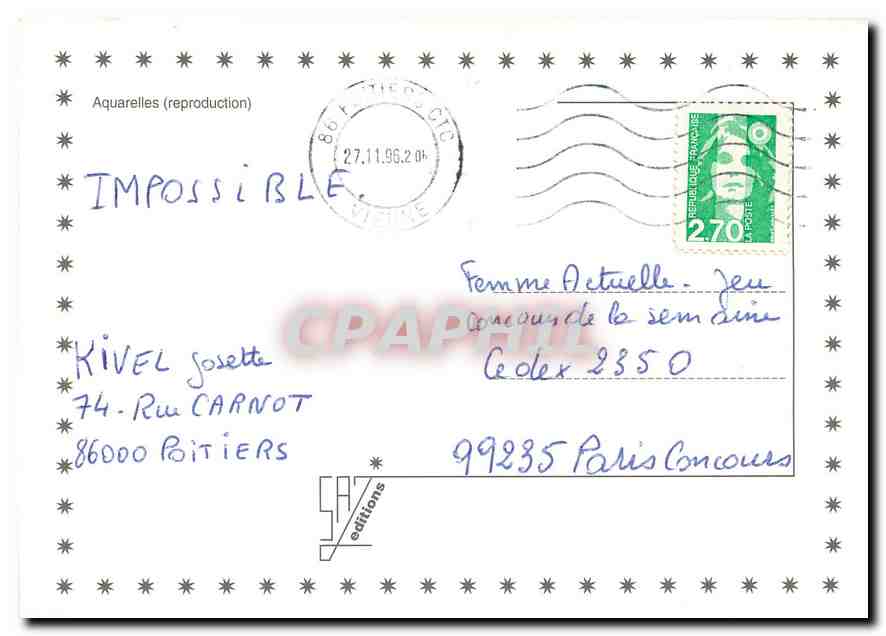 Aquarelles (reproduction)
86 POITIERS CTC
27.11.96.20H
VIENNE
REPUBLIQUE FRANÇAISE
2.70
LA POSTE
IMPOSSIBLE.
Femme Actuelle - Jeu
concours de la semaine
Cedex 2350
99235 Paris Concours
KIVEL Josette
74 - Rue CARNOT
86000 POITIERS
CPAPHIL
SAZ
editions